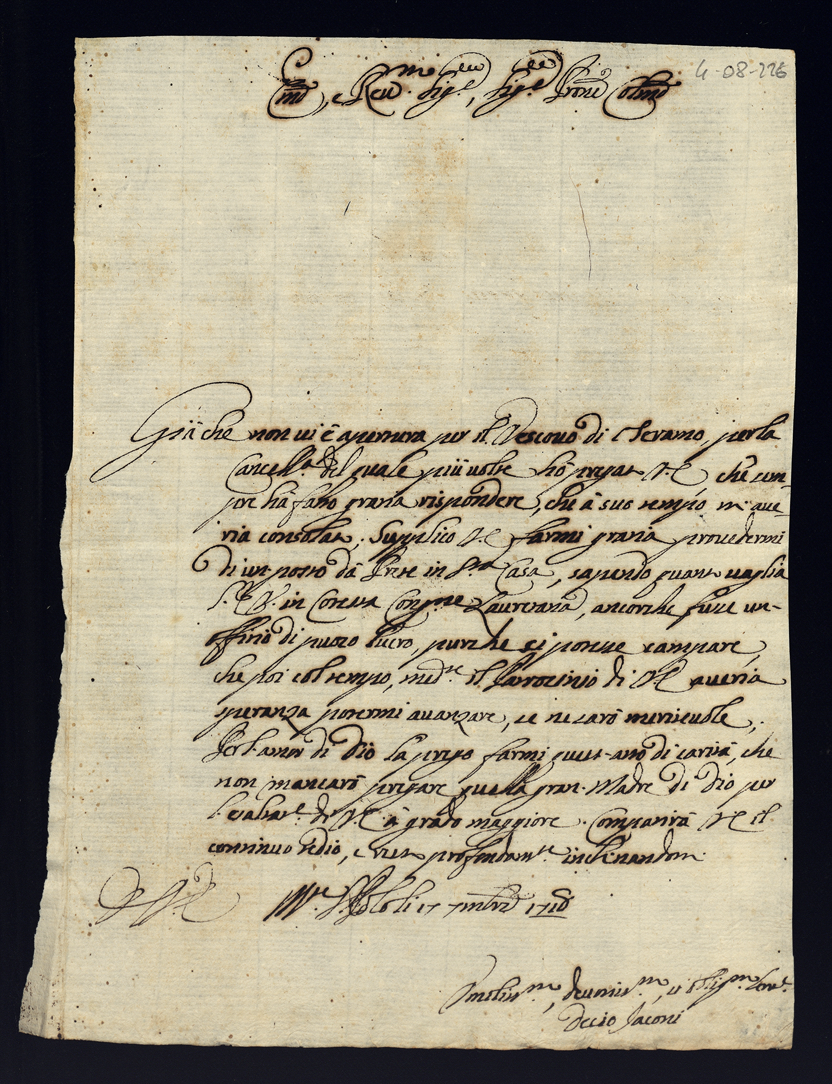 4-08-226
Em̃o, e Reu.mo Sig.re, Sig.re Prone Colmo
Già che non ui è apertura per il Vescouo di Teramo, per la
Cancell.a del quale più uolte hò pregato V.E. che sem-
pre hà fatto grazia rispondere, che à suo tempo, m'aue-
ria consolato; Supplico V.E. farmi grazia prouedermi
di un posto dà Prete in S.ta Casa, sapendo quanto uaglia
in Cotesta Lauretana, ancorche fusse un-
offizio di puoco lucro, purche si potesse campare,
che poi col tempo, med.te il Patrocinio di V.E. aueria
speranza potermi auanzare, se ne sarò meriteuole.
Per l'amor di Dio la prego farmi quest'atto di carità, che
non mancarò pregare quella gran Madre di Dio per
l'esaltat.e di V.E. à grado maggiore. Compatirà V.E. il
continuo tedio, e resto profondam.te inchinandomi
Di V.E. li 17 7mbre 1718
Vmiliss.mo, deuotiss.mo, et obblig.mo Seru.e
Decio Jaconi